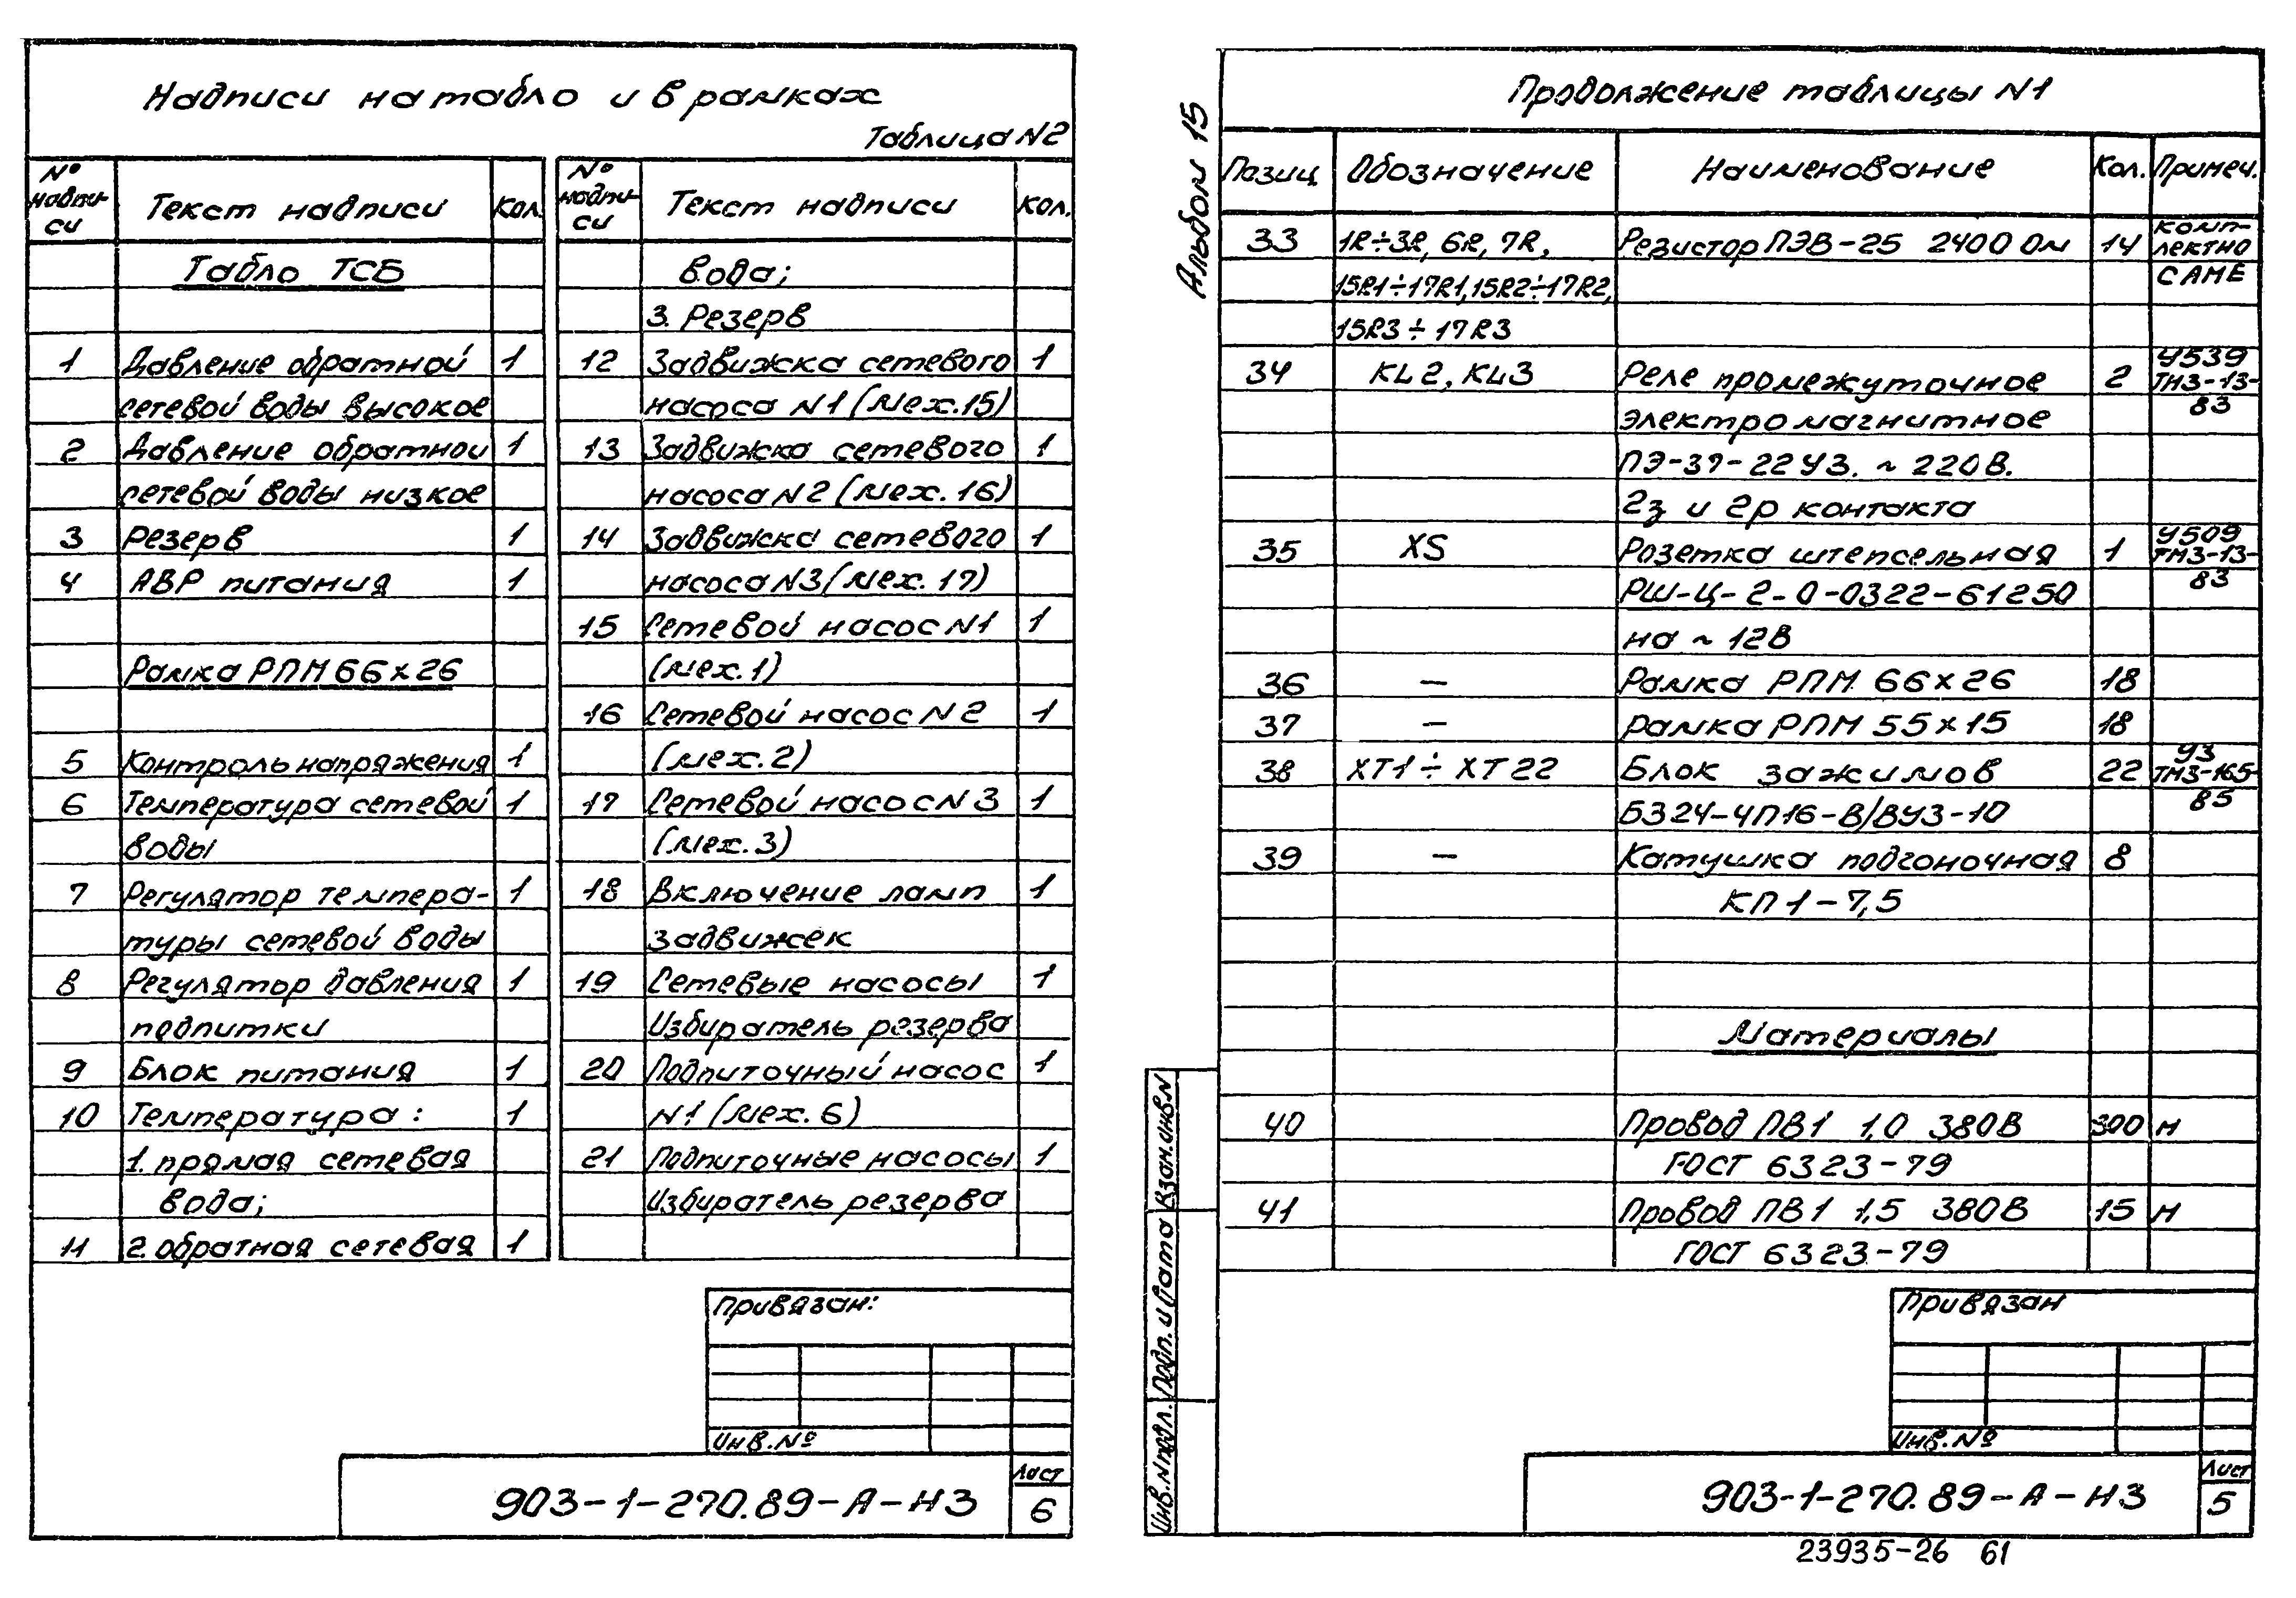 Надписи на табло и в рамках
Таблица N2
№ надпи-си Текст надписи Кол.
Табло ТСБ
1 Давление обратной 1
сетевой воды высокое
2 Давление обратной 1
сетевой воды низкое
3 Резерв 1
4 АВР питания 1
Рамка РПМ 66×26
5 Контроль напряжения 1
6 Температура сетевой 1
воды
7 Регулятор темпера- 1
туры сетевой воды
8 Регулятор давления 1
подпитки
9 Блок питания 1
10 Температура: 1
1. прямая сетевая
вода;
11 2. обратная сетевая 1
№ надпи-си Текст надписи Кол.
вода;
3. Резерв
12 Задвижка сетевого 1
насоса N1 (Мех.15)
13 Задвижка сетевого 1
насоса N2 (Мех.16)
14 Задвижка сетевого 1
насоса N3 (Мех.17)
15 Сетевой насос N1 1
(Мех.1)
16 Сетевой насос N2 1
(Мех.2)
17 Сетевой насос N3 1
(Мех.3)
18 Включение ламп 1
задвижек
19 Сетевые насосы 1
Избиратель резерва
20 Подпиточный насос 1
N1 (Мех.6)
21 Подпиточные насосы 1
Избиратель резерва
Привязан:
Инв.№
903-1-270.89-А-НЗ
Лист
6
Альбом 15
Продолжение таблицы N1
Позиц Обозначение Наименование Кол. Примеч.
33 1R÷3R, 6R, 7R, Резистор ПЭВ-25 2400 Ом 14 комп-лектно
15R1÷17R1, 15R2÷17R2, САМЕ
15R3÷17R3
34 KL2, KL3 Реле промежуточное 2 У539 ТМЗ-13-
электромагнитное 83
ПЭ-37-22УЗ. ~220В.
2з и 2р контакта
35 XS Розетка штепсельная 1 У509 ТМЗ-13-
РШ-Ц-2-0-0322-61250 83
на ~12В
36 – Рамка РПМ 66×26 18
37 – Рамка РПМ 55×15 18
38 ХТ1÷ХТ22 Блок зажимов 22 У3 ТМЗ-165-
БЗ24-4П16-В/ВУЗ-10 85
39 – Катушка подгоночная 8
КП1-7,5
Материалы
40 Провод ПВ1 1,0 380В 300 м
ГОСТ 6323-79
41 Провод ПВ1 1,5 380В 15 м
ГОСТ 6323-79
Взам.инв.N
Подп. и дата
Инв.Nподл.
Привязан
Инв.№
903-1-270.89-А-НЗ
Лист
5
23935-26 61